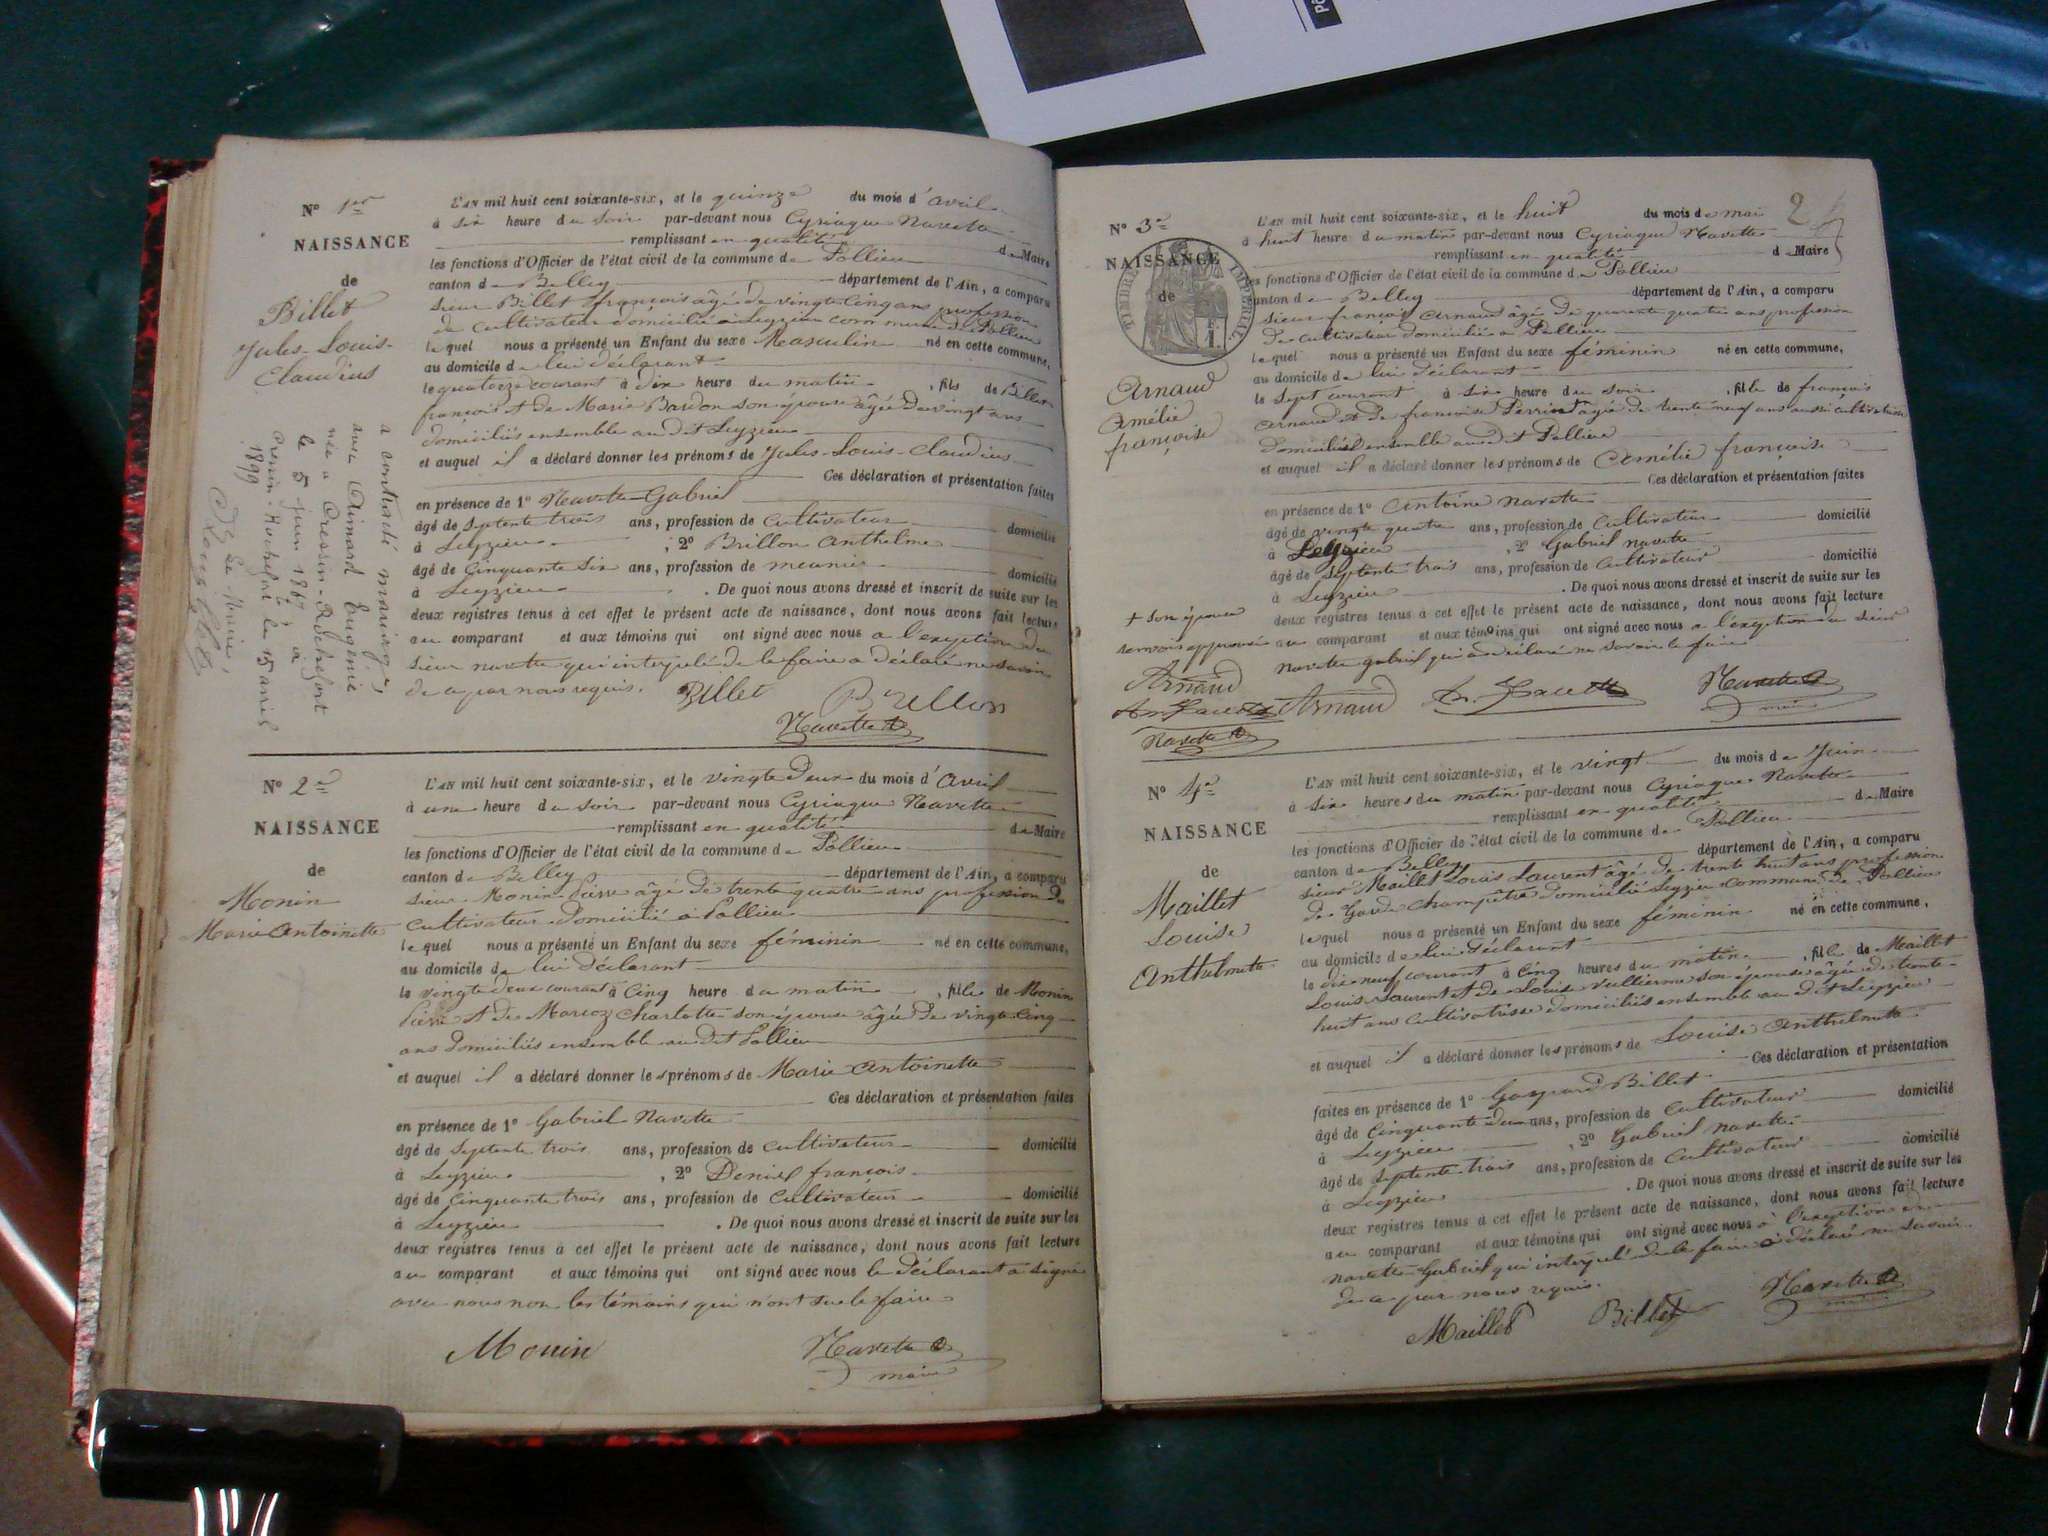 N° 1er
NAISSANCE
de
Billet
Jules-Louis-
Claudius
L'AN mil huit cent soixante-six, et le quinze du mois d'avril
à six heure du soir par-devant nous Cyriaque Navette
remplissant en qualité de Maire
les fonctions d'Officier de l'état civil de la commune de Pollieu
canton de Belley département de l'Ain, a comparu
sieur Billet françois âgé de vingt cinq ans profession
de cultivateur domicilié à Leyzieu commune de Pollieu
lequel nous a présenté un Enfant du sexe Masculin né en cette commune,
au domicile de lui déclarant
le quatorze courant à dix heure du matin, fils de Billet
françois et de Marie Bardon son épouse âgée de vingt ans
domiciliés ensemble au dit Leyzieu
et auquel il a déclaré donner les prénoms de Jules-Louis-Claudius
Ces déclaration et présentation faites
en présence de 1° Navette Gabriel
âgé de septente trois ans, profession de cultivateur domicilié
à Leyzieu, 2° Brillon Anthelme
âgé de cinquante six ans, profession de meunier domicilié
à Leyzieu. De quoi nous avons dressé et inscrit de suite sur les
deux registres tenus à cet effet le présent acte de naissance, dont nous avons fait lecture
au comparant et aux témoins qui ont signé avec nous a l'exeption du
sieur navette qui interpelé de le faire a déclaré ne savoir
de ce par nous requis. Billet Brillon
Navette
a contracté mariage,
avec Aimard Eugénie
née à Cressin-Rochefort
le 5 juin 1867 à
Cressin-Rochefort le 15 avril
1899
Le Maire,
N° 2e
NAISSANCE
de
Monin
Marie Antoinette
L'AN mil huit cent soixante-six, et le vingt deux du mois d'avril
à une heure du soir par-devant nous Cyriaque Navette
remplissant en qualité de Maire
les fonctions d'Officier de l'état civil de la commune de Pollieu
canton de Belley département de l'Ain, a comparu
sieur Monin Pierre âgé de trente quatre ans profession de
cultivateur domicilié à Pollieu
lequel nous a présenté un Enfant du sexe féminin né en cette commune,
au domicile de lui déclarant
le vingt deux courant à cinq heure du matin, fille de Monin
Pierre et de Marcoz Charlotte son épouse âgée de vingt cinq
ans domiciliés ensemble au dit Pollieu
et auquel il a déclaré donner les prénoms de Marie Antoinette
Ces déclaration et présentation faites
en présence de 1° Gabriel Navette
âgé de septente trois ans, profession de cultivateur domicilié
à Leyzieu, 2° Deniel françois
âgé de cinquante trois ans, profession de cultivateur domicilié
à Leyzieu. De quoi nous avons dressé et inscrit de suite sur les
deux registres tenus à cet effet le présent acte de naissance, dont nous avons fait lecture
au comparant et aux témoins qui ont signé avec nous le déclarant a signé
avec nous non les témoins qui n'ont sue le faire
Monin Navette
maire
2
N° 3e
NAISSANCE
de
TIMBRE IMPERIAL
Arnaud
Amélie
françoise
L'AN mil huit cent soixante-six, et le huit du mois de mai
à huit heure du matin par-devant nous Cyriaque Navette
remplissant en qualité de Maire
les fonctions d'Officier de l'état civil de la commune de Pollieu
canton de Belley département de l'Ain, a comparu
sieur françois Arnaud âgé de quarente quatre ans profession
de cultivateur domicilié à Pollieu
lequel nous a présenté un Enfant du sexe féminin né en cette commune,
au domicile de lui déclarant
le sept courant à six heure du soir, fille de françois
Arnaud et de françoise Perrin + âgée de trente neuf ans aussi cultivatrice
domiciliés ensemble au dit Pollieu
et auquel il a déclaré donner les prénoms de Amélie françoise
Ces déclaration et présentation faites
en présence de 1° Antoine navette
âgé de vingt quatre ans, profession de cultivateur domicilié
à Leyzieu, 2° Gabriel navette
âgé de septente trois ans, profession de cultivateur domicilié
à Leyzieu. De quoi nous avons dressé et inscrit de suite sur les
deux registres tenus à cet effet le présent acte de naissance, dont nous avons fait lecture
au comparant et aux témoins qui ont signé avec nous a l'exeption du sieur
navette gabriel qui a déclaré ne savoir le faire
+ son épouse
renvois approuvé
Arnaud
Navette
Arnaud Navette
N° 4e
NAISSANCE
de
Maillet
Louise
Anthelmette
L'AN mil huit cent soixante-six, et le vingt du mois de Juin
à six heures du matin par-devant nous Cyriaque Navette
remplissant en qualité de Maire
les fonctions d'Officier de l'état civil de la commune de Pollieu
canton de Belley département de l'Ain, a comparu
sieur Maillet Louis Laurent âgé de trente huit ans profession
de Garde champêtre domicilié Leyzieu commune de Pollieu
lequel nous a présenté un Enfant du sexe féminin né en cette commune,
au domicile de lui déclarant
le dix neuf courant à cinq heures du matin, fille de Maillet
Louis Laurent et de Louise Vullierme son épouse âgée de trente
huit ans cultivatrisse domiciliés ensemble au dit Leyzieu
et auquel il a déclaré donner les prénoms de Louise Anthelmette
Ces déclaration et présentation
faites en présence de 1° Gaspard Billet
âgé de cinquante deux ans, profession de cultivateur domicilié
à Leyzieu, 2° Gabriel navette
âgé de septente trois ans, profession de cultivateur domicilié
à Leyzieu. De quoi nous avons dressé et inscrit de suite sur les
deux registres tenus à cet effet le présent acte de naissance, dont nous avons fait lecture
au comparant et aux témoins qui ont signé avec nous à l'exeption
navette Gabriel qui interpelé de le faire a déclaré ne savoir
de ce par nous requis.
Maillet Billet Navette